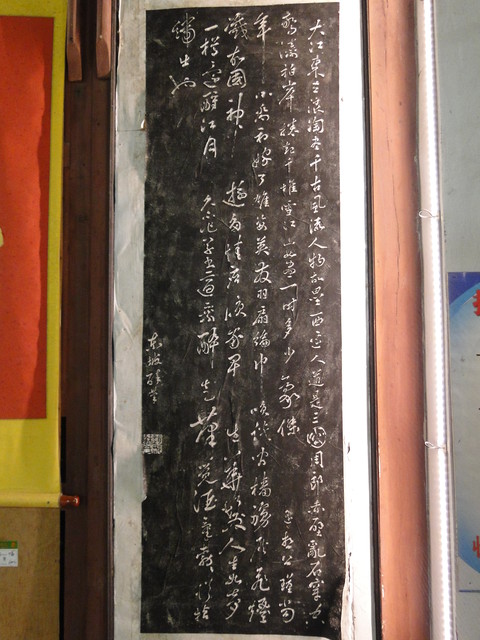 大江東去浪淘盡千古風流人物故壘西邊人道是三國周郎赤壁亂石穿空
驚濤拍岸捲起千堆雪江山如畫一時多少豪傑遙想公瑾當
年小喬初嫁了雄姿英發羽扇綸巾談笑間檣櫓灰飛煙
滅故國神遊多情應笑我早生華髮人生如夢
一樽還酹江月久不作草書適乘醉走筆覺酒氣勃勃從指
端出也
東坡醉筆